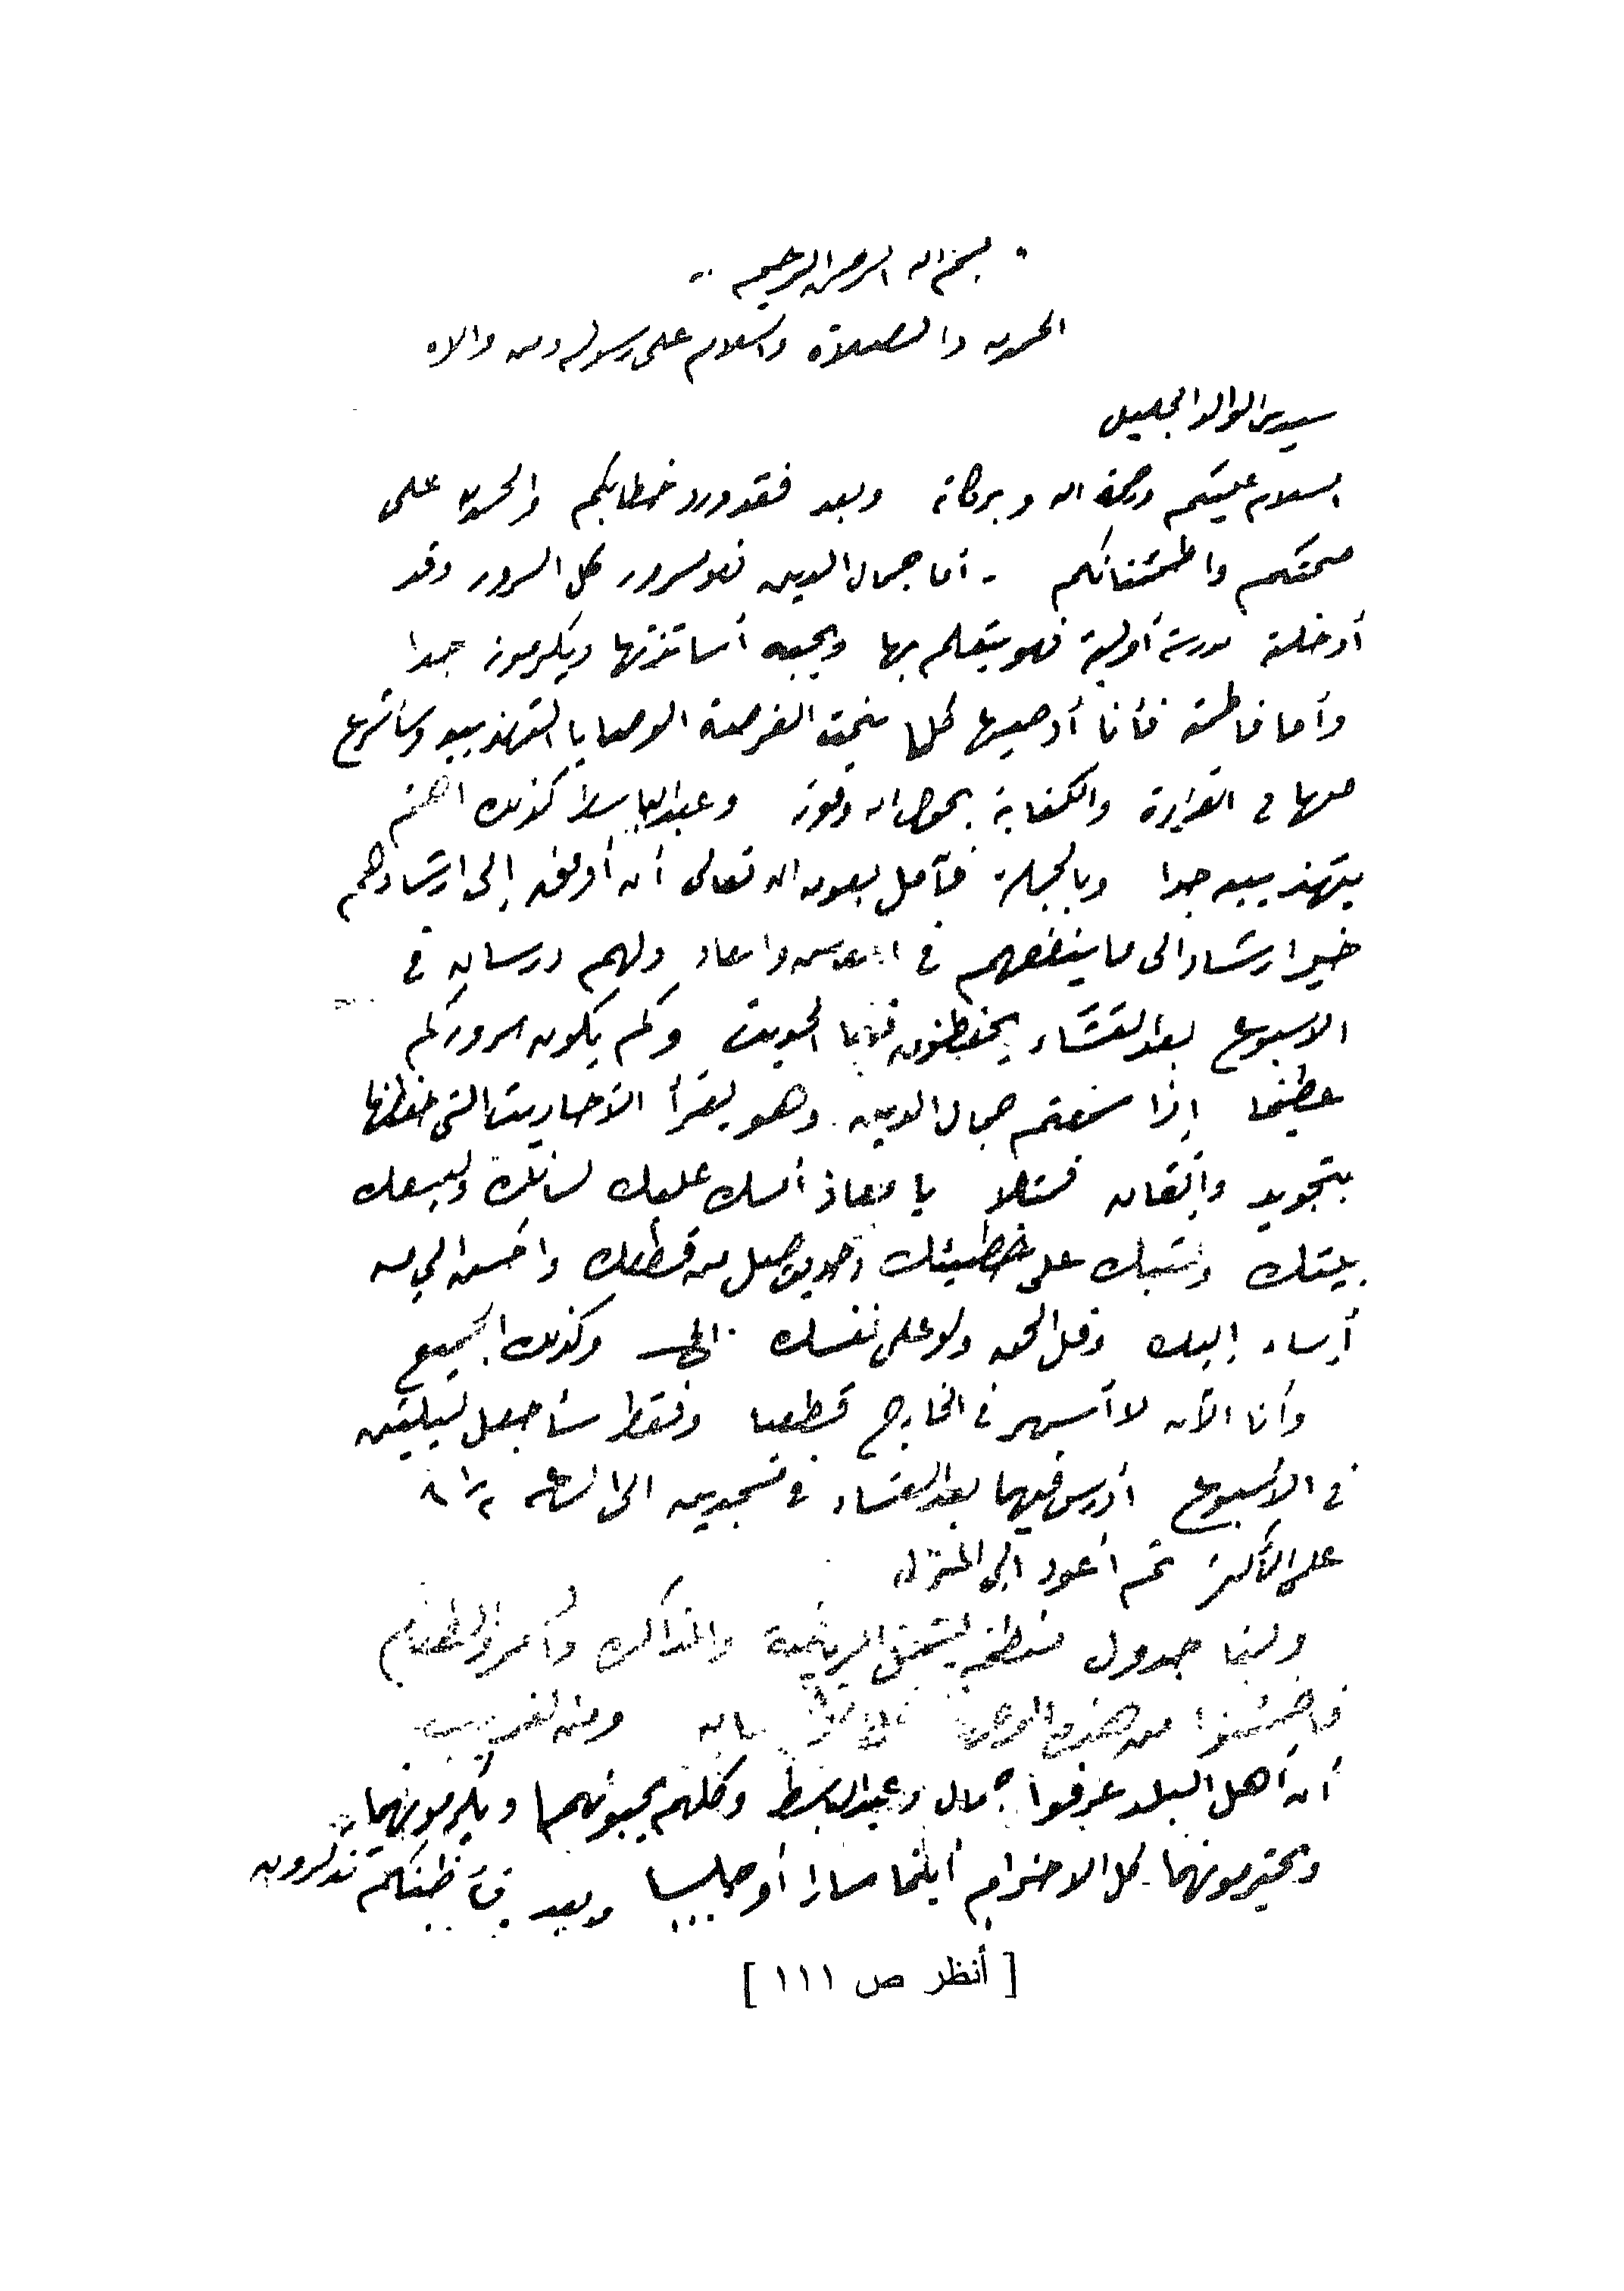 بسم الله الرحمن الرحيم
الحمد لله والصلاة والسلام على رسوله ومن والاه
سيدى الوالد الجليل
السلام عليكم ورحمة الله وبركاته وبعد فقد ورد خطابكم والحمد لله على
صحتكم واطمئنانكم - أما جمال الدين فهو مسرور كل السرور وقد
أدخلته مدرسة أولية فهو يتعلم بها ويحبه أساتذتها ويكرمونه جدا
وأما فاطمة فأنا أوصيها كلما سنحت الفرصة الوصايا التهذيبية وسأشرع
معها فى القراءة والكتابة بحول الله وقوته وعبد الباسط كذلك اهتم
بتهذيبه جدا وبالجملة فآمل بعون الله تعالى أن أوفق إلى ارشادهم
خير ارشاد الى ما ينفعهم فى المعاش والمعاد ولهم درسان فى
الاسبوع بعد العشاء يحفظون فيهما الحديث وكم يكون سروركم
عظيما إذا سمعتم جمال الدين وهو يقرأ الأحاديث التى حفظها
بتجويد واتقان فمثلا يا معاذ أمسك عليك لسانك وليسعك
بيتك ولتبك على خطيئتك وحديث صل من قطعك واحسن الى من
أساء إليك وقل الحق ولو على نفسك الخ وكذلك الجميع
وأنا الآن لا أسهر فى الخارج قطعيا وفقط سأجعل ليلتين
فى الاسبوع أدرس فيهما بعد العشاء فى مسجدين الى الساعة ٨ ١/٢
على الأكثر ثم أعود الى المنزل
ولنا جدول منظم يشمل الرياضة والمذاكرة والطعام
فاطمئنوا من هذه
ومن الغريب
أن أهل البلد عرفوا جمال وعبد الباسط وكلهم يحبونهما ويكرمونهما
ويحترمونهما كل الاحترام أينما سارا أو جلسا وبعد فأظنكم تذكرون
[ أنظر ص ١١١ ]